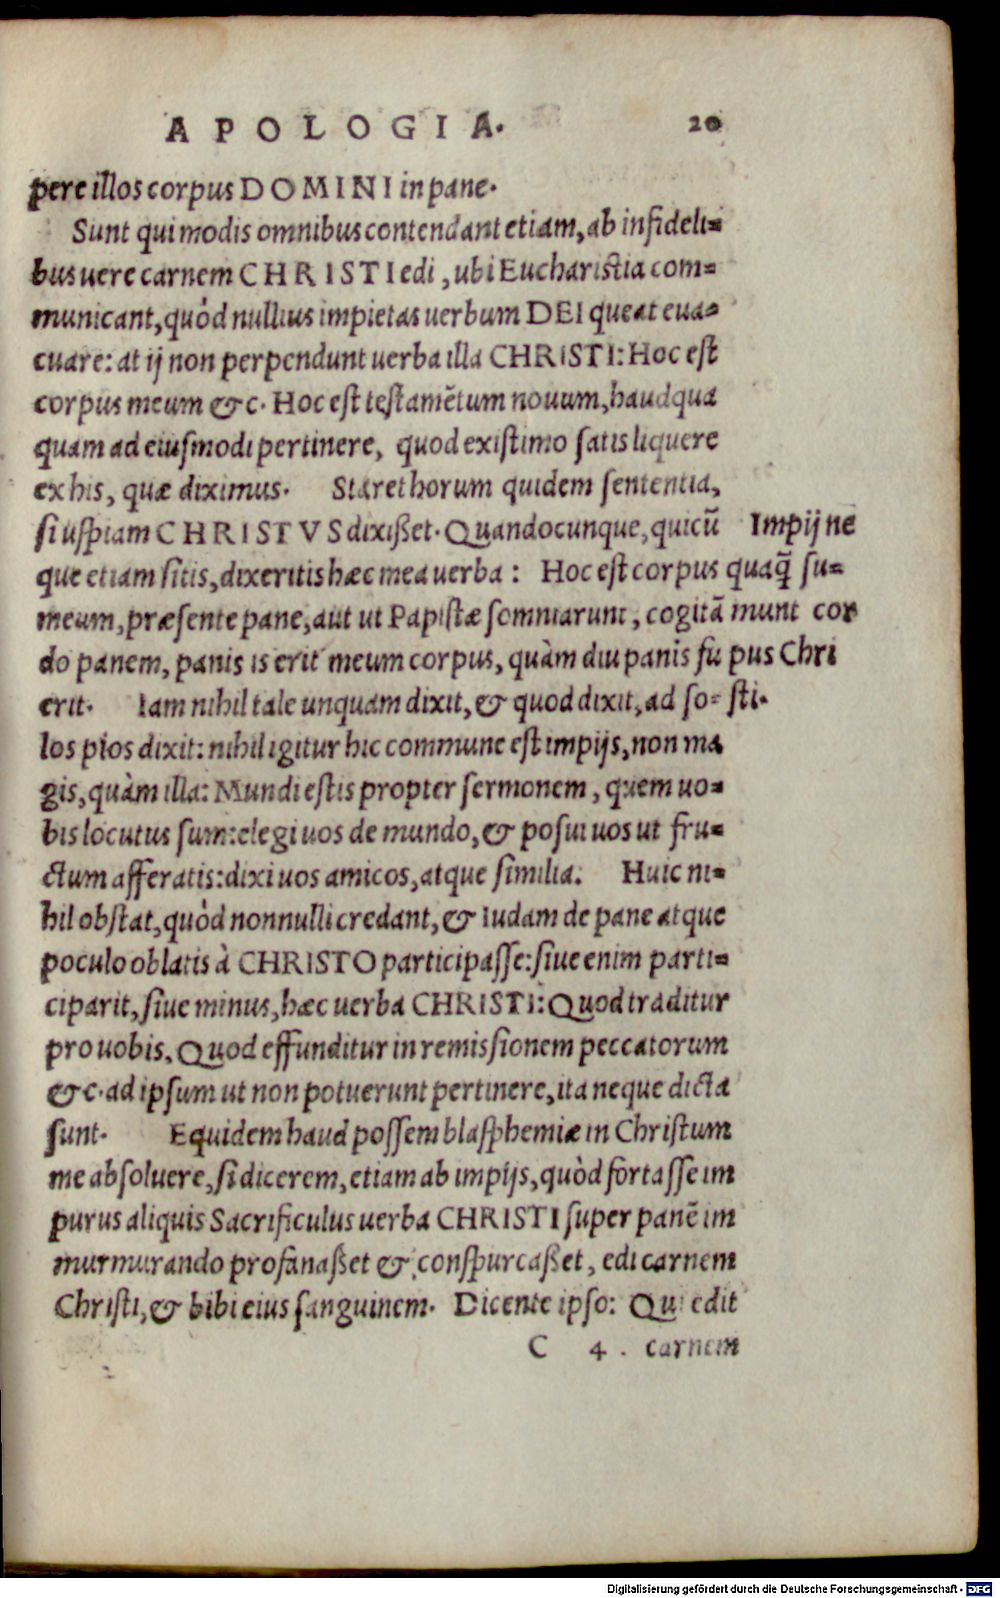 APOLOGIA. 20
pere illos corpus DOMINI in pane.
Sunt qui modis omnibus contendant etiam, ab infideli=
bus uere carnem CHRISTI edi, ubi Eucharistia com=
municant, quòd nullius impietas uerbum DEI queat eua=
cuare: at ij non perpendunt uerba illa CHRISTI: Hoc est
corpus meum &c. Hoc est testamẽtum nouum, haudqua
quam ad eiusmodi pertinere, quod existimo satis liquere
ex his, quæ diximus. Staret horum quidem sententia,
si uspiam CHRISTVS dixißet. Quandocunque, quicũ
que etiam sitis, dixeritis hæc mea uerba: Hoc est corpus
meum, præsente pane, aut ut Papistæ somniarunt, cogitã
do panem, panis is erit meum corpus, quàm diu panis fu
erit. Iam nihil tale unquam dixit, & quod dixit, ad so=
los pios dixit: nihil igitur hic commune est impijs, non ma
gis, quàm illa: Mundi estis propter sermonem, quem uo=
bis locutus sum: elegi uos de mundo, & posui uos ut fru=
ctum afferatis: dixi uos amicos, atque similia. Huic ni=
hil obstat, quòd nonnulli credant, & Iudam de pane atque
poculo oblatis à CHRISTO participasse: siue enim parti=
ciparit, siue minus, hæc uerba CHRISTI: Quod traditur
pro uobis, Quod effunditur in remissionem peccatorum
&c. ad ipsum ut non potuerunt pertinere, ita neque dicta
sunt. Equidem haud possem blasphemiæ in Christum
me absoluere, si dicerem, etiam ab impijs, quòd fortasse im
purus aliquis Sacrificulus uerba CHRISTI super panẽ im
murmurando profanaßet & conspurcaßet, edi carnem
Christi, & bibi eius sanguinem. Dicente ipso: Qui edit
C 4. carnem
Impij ne
quaq̃ su=
munt cor
pus Chri
sti.
Digitalisierung gefördert durch die Deutsche Forschungsgemeinschaft - DFG